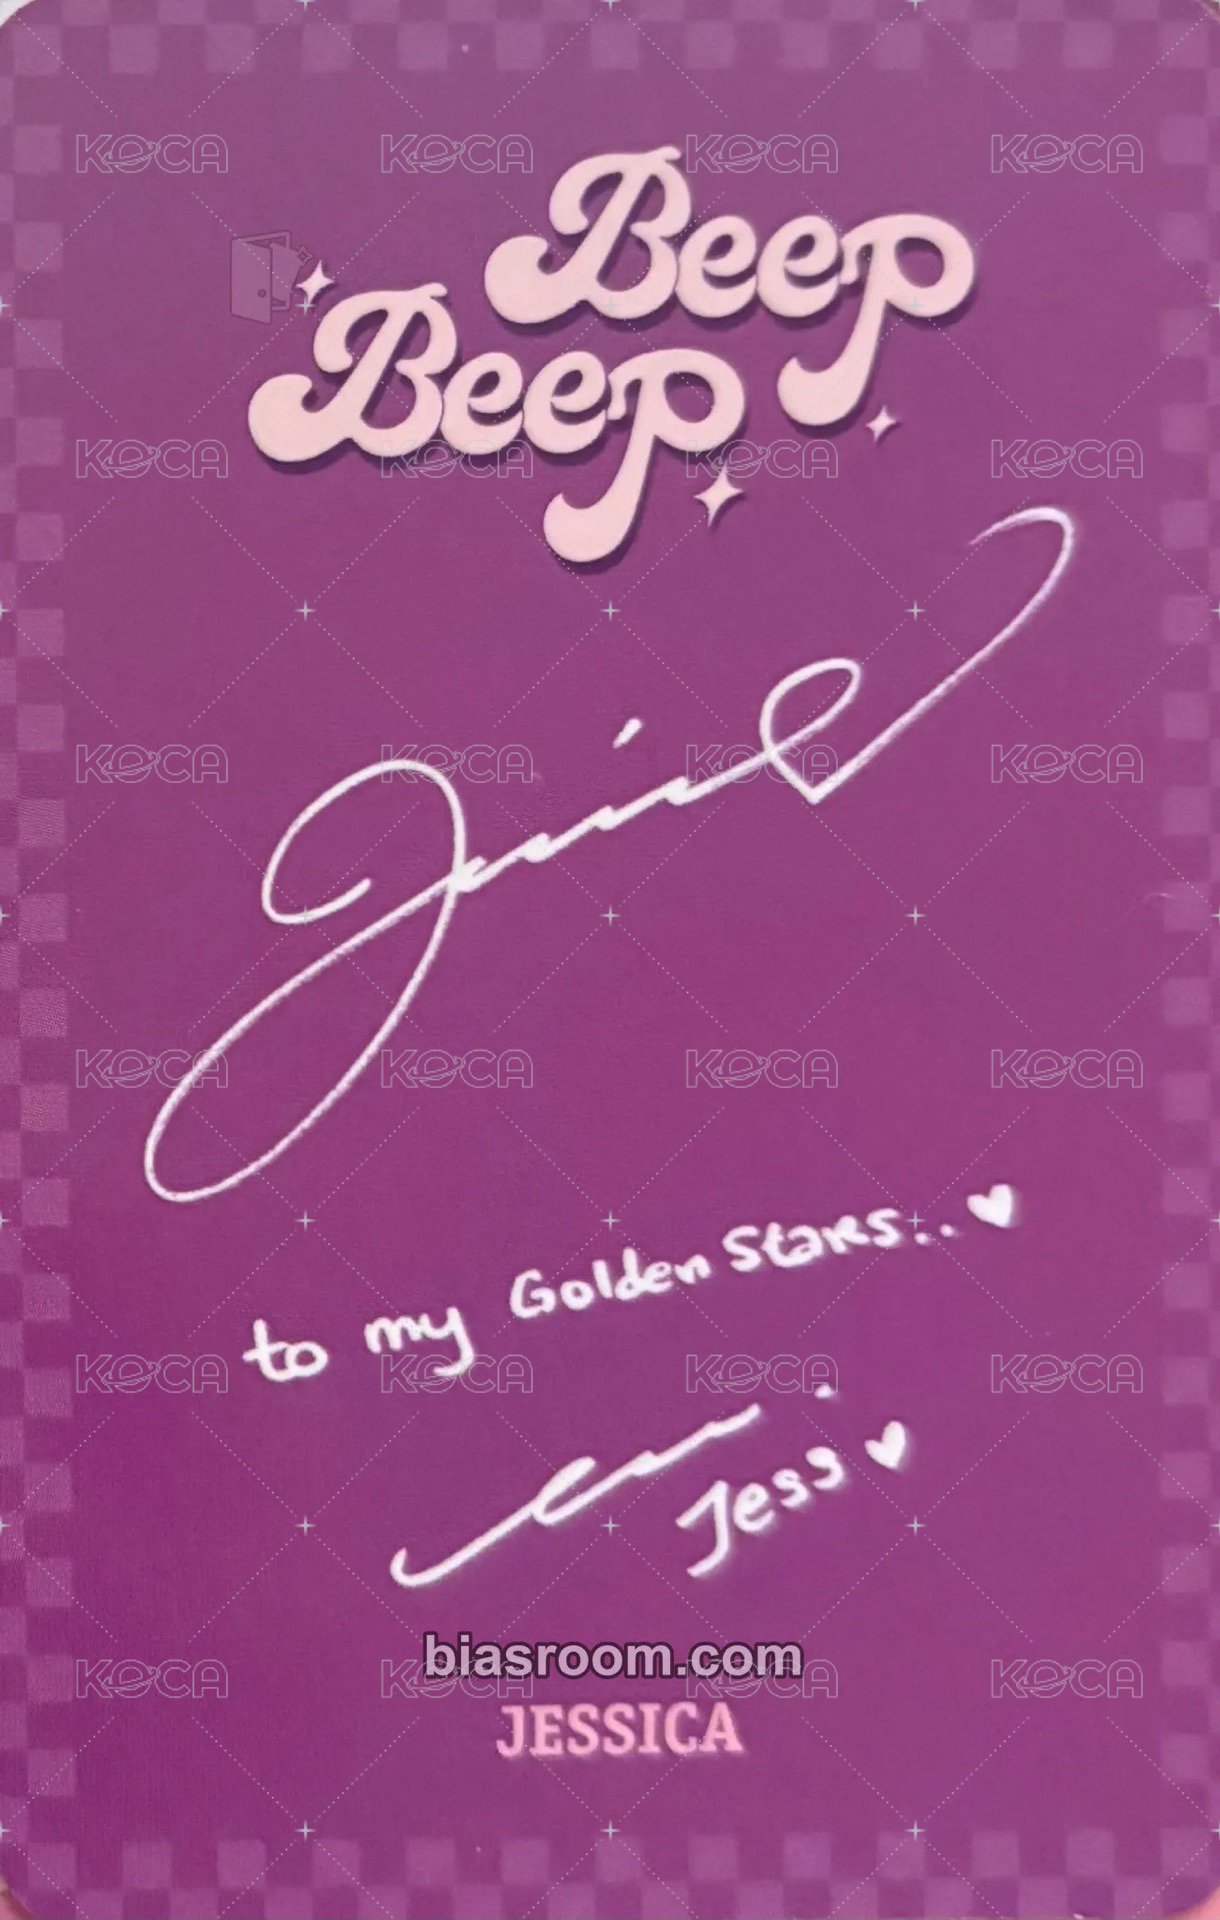 Beep
Beep
Jessica
to my Golden Stars..♥
Jess ♥
biasroom.com
JESSICA
KOCA KOCA KOCA KOCA
KOCA KOCA KOCA KOCA
KOCA KOCA KOCA KOCA
KOCA KOCA KOCA KOCA
KOCA KOCA KOCA KOCA
KOCA KOCA KOCA KOCA